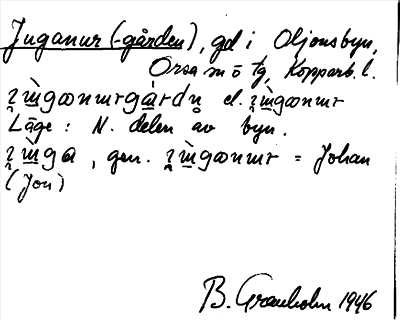 Juganur (-gården), gd i Oljonsbyn,
Orsa sn ö tg, Kopparb. l.
el.
Läge: N. delen av byn.
, gen. = Johan
(Jon)
B. Granholm 1946